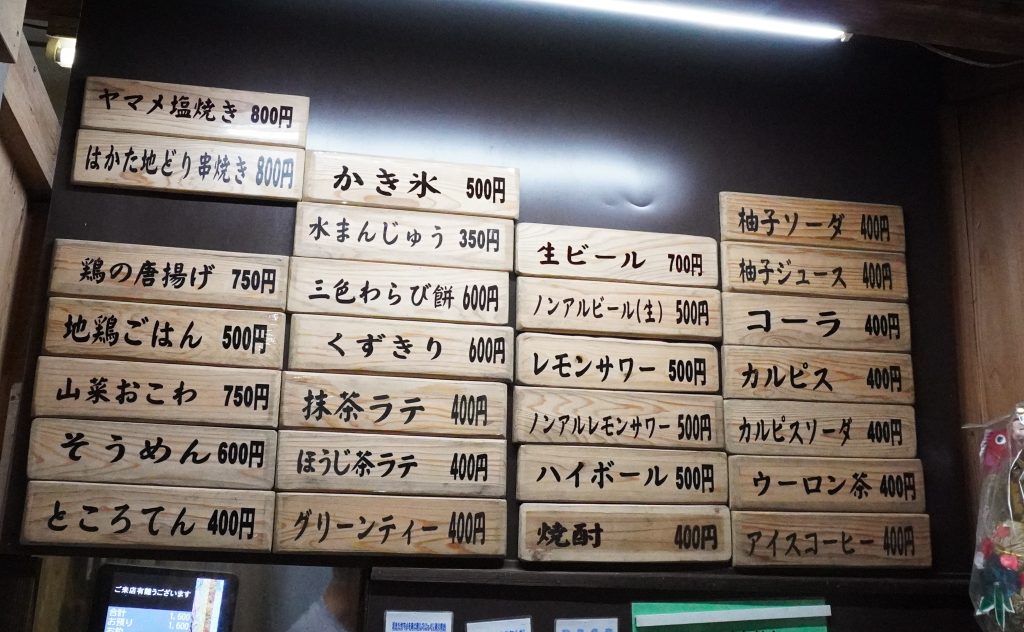 ヤマメ塩焼き 800円
はかた地どり串焼き 800円
鶏の唐揚げ 750円
地鶏ごはん 500円
山菜おこわ 750円
そうめん 600円
ところてん 400円
かき氷 500円
水まんじゅう 350円
三色わらび餅 600円
くずきり 600円
抹茶ラテ 400円
ほうじ茶ラテ 400円
グリーンティー 400円
生ビール 700円
ノンアルビール(生) 500円
レモンサワー 500円
ノンアルレモンサワー 500円
ハイボール 500円
焼酎 400円
柚子ソーダ 400円
柚子ジュース 400円
コーラ 400円
カルピス 400円
カルピスソーダ 400円
ウーロン茶 400円
アイスコーヒー 400円
ご来店有難うございます
合計 1,600
お預り 1,600